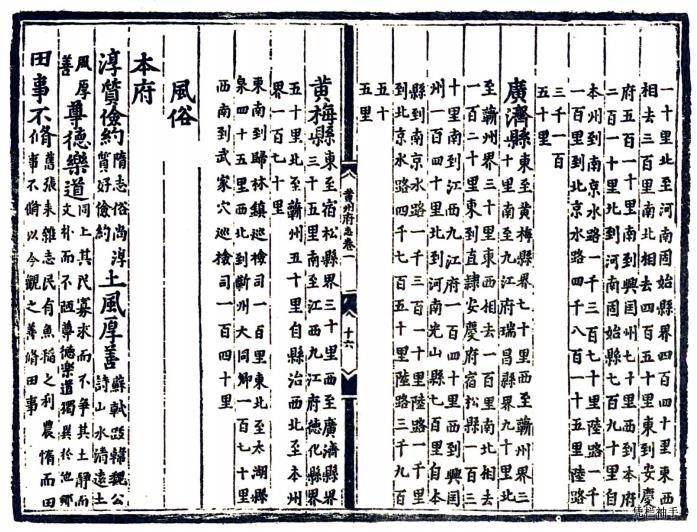 一十里北至河南固始縣界四百四十里東西
相去三百里南北相去四百五十里東到安慶
府五百一十里南到興國州七十里西到本府
二百一十里北到河南固始縣七百七十里自
本州到南京水路一千三百七十里陸路一千
一百里到北京水路四千八百一十五里陸路
三千一百
五十里
廣濟縣東至黃梅縣界七里西至蘄州界三
十里南至九江府瑞昌縣界九十里北
至蘄州界三十里東西相去一百里南北相去
一百二十里東到直隸安慶府宿松縣一百三
十里南到江西九江府一百四十里西到興國
州一百四十里北到河南光山縣七百里自本
縣到南京水路一千三百一十里陸路一千里
到北京水路四千七百五十里陸路三千九百
五十
五里
黃州府志卷一
十六
黃梅縣東至宿松縣界三十里西至廣濟縣界
三十五里南至江西九江府德化縣界
五十里北至蘄州五十里自縣治西北至本州
界一百七十里
東南到歸林鎮巡檢司一百里東北至太湖縣
泉四十五里西北到蘄州大同鄉一百七十里
西南到武家穴巡檢司一百四十里
風俗
本府
淳質儉約隋志俗尚淳質好儉約土風厚善蘇軾跋韓魏公詩山水清遠土
風厚善尊德樂道同上其民寡求而不爭其士靜而文朴而不陋尊德樂道獨異於他鄉
田事不脩舊張耒雜志民有魚稻之利農惰而田事不脩以今觀之善脩田事
凭栏袖手